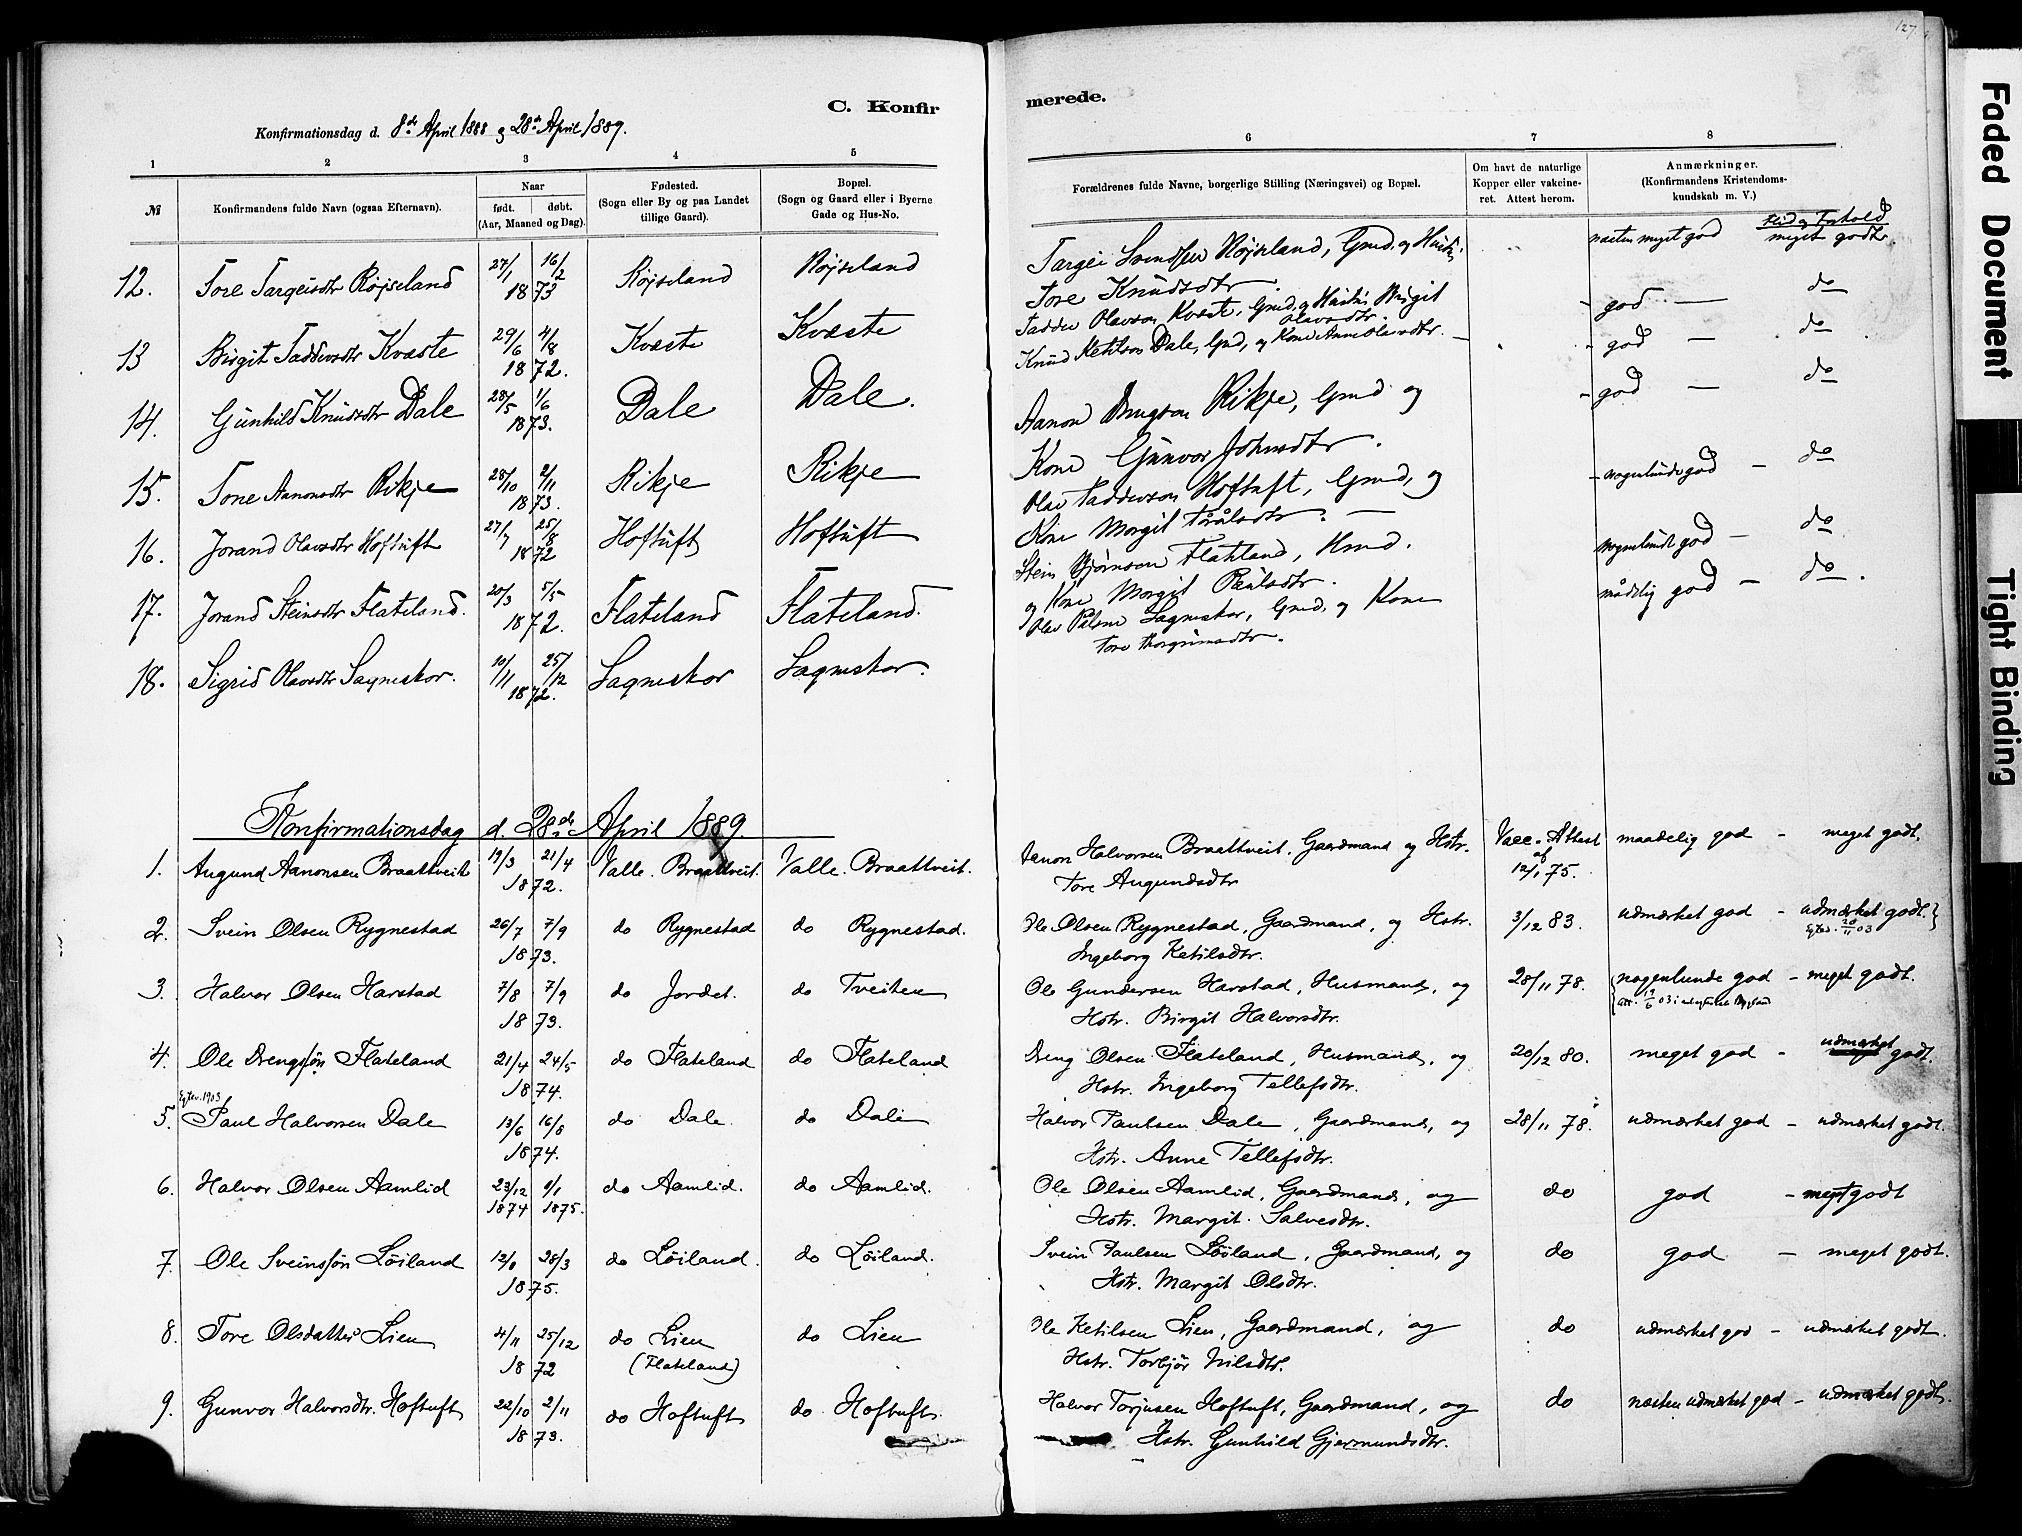 127.
C. Konfir
merede.
Konfirmationsdag d. 8de April 1888 og 28de April 1889.
1 2 3 4 5 6 7 8
№
Konfirmandens fulde Navn (ogsaa Efternavn).
Naar
født. døbt.
(Aar, Maaned og Dag).
Fødested.
(Sogn eller By og paa Landet
tillige Gaard).
Bopæl.
(Sogn og Gaard eller i Byerne
Gade og Hus-No.
Forældrenes fulde Navne, borgerlige Stilling (Næringsvei) og Bopæl.
Om havt de naturlige
Kopper eller vakcine-
ret. Attest herom.
Anmærkninger.
(Konfirmandens Kristendoms-
kundskab m. V.)
Flid og Forhold
12. Tore Targeisdtr Røjseland 27/1 16/2 1873 Røjseland Røjseland
Targei Svendsen Røjseland, Gmd. og Hustr. næsten myget god meget godt
Tore Knudsdtr.
13 Birgit Taddevsdtr Kvæste 29/6 4/8 1872. Kvæste Kvæste
Taddev Olavson Kvæste, Gmd. og Hustr. Birgit Olavsdtr. - god — do
14. Gunhild Knudsdtr Dale 28/5 1/6 1873. Dale Dale.
Knud Ketilson Dale, Gmd, og Kone Anne Olavsdtr. - god — do
15. Tone Aanonsdtr Rikje 28/10 2/11 1873. Rikje Rikje
Aanon Drugson Rikje, Gmd og - god — do
Kone Gunvor Johnsdtr.
16. Jorand Olavsdtr Hoftuft 27/7 25/8 1872 Hoftuft Hoftuft
Olav Taddevson Hoftuft, Gmd, og - nogenlunde god — do
Kone Morgit Toraldsdtr. —
17. Jorand Steinsdtr Flateland. 20/3 5/5 1872. Flateland Flateland.
Stein Bjørnson Flateland, Hmd. nogenlunde god — do
og Kone Morgit Paulsdtr.
18. Sigrid Olavsdtr Sagneskor. 10/11 25/12 1872. Sagneskor Sagneskor.
Olav Pålson Sagneskor, Gmd. og Kone mådelig god — do.
Tore Thorgrimsdtr.
Konfirmationsdag d. 28de April 1889.
1. Augund Aanonsen Braattveit 19/3 21/4 1872. Valle. Braattveit. Valle. Braattveit.
Aanon Halvorsen Braattveit, Gaardmand og Hstr. Vacc. Attest maadelig god - meget godt.
Tore Augundsdtr af 12/1 75.
2. Svein Olsen Rygnestad 26/7 7/9 1873. do Rygnestad do Rygnestad.
Ole Olsen Rygnestad, Gaardmand, og Hstr. 3/12 83. udmærket god - udmærket godt. }
Ingeborg Ketilsdtr. 20/11 03
3. Halvor Olsen Harstad 7/8 7/9 1873. do Jordet. do Tveiten
Ole Gundersen Harstad, Husmand, og 28/11 78. { nogenlunde god - meget godt.
Hstr. Birgit Halvorsdtr. att. 19/6 03
4. Ole Drengsøn Flateland 21/4 24/5 1874. do Flateland do Flateland
Dreng Olsen Flateland, Husmand, og 20/12 80. meget god - udmærket godt.
Hstr. Ingeborg Tellefsdtr.
Egtev. 1903
5. Paul Halvorsen Dale 13/6 16/8 1874. do Dale. do Dale
Halvor Paulsen Dale, Gaardmand, og 28/11 78. udmærket god - udmærket godt.
Hstr. Anne Tellefsdtr.
6. Halvor Olsen Aamlid 23/12 1874 1/1 1875. do Aamlid. do Aamlid.
Ole Olsen Aamlid, Gaardmand, og do god - meget godt
Hstr. Margit Salvesdtr.
7. Ole Sveinssøn Løiland 28/3 1875. do Løiland. do Løiland.
Svein Paulsen Løiland, Gaardmand, og do god - meget godt.
Hstr. Margit Olsdtr.
8. Tore Olsdatter Lien 4/11 25/12 1872 do Lien do Lien
(Flateland)
Ole Ketilsen Lien, Gaardmand, og do udmærket god - udmærket godt.
Hstr. Torbjør Nilsdtr.
9. Gunvor Halvorsdtr. Hoftuft 22/10 2/11 1873. do Hoftuft do Hoftuft.
Halvor Torjusen Hoftuft, Gaardmand, og do næsten udmærket god - udmærket godt.
Hstr. Gunhild Gjermundsdtr.
Faded Document
Tight Binding